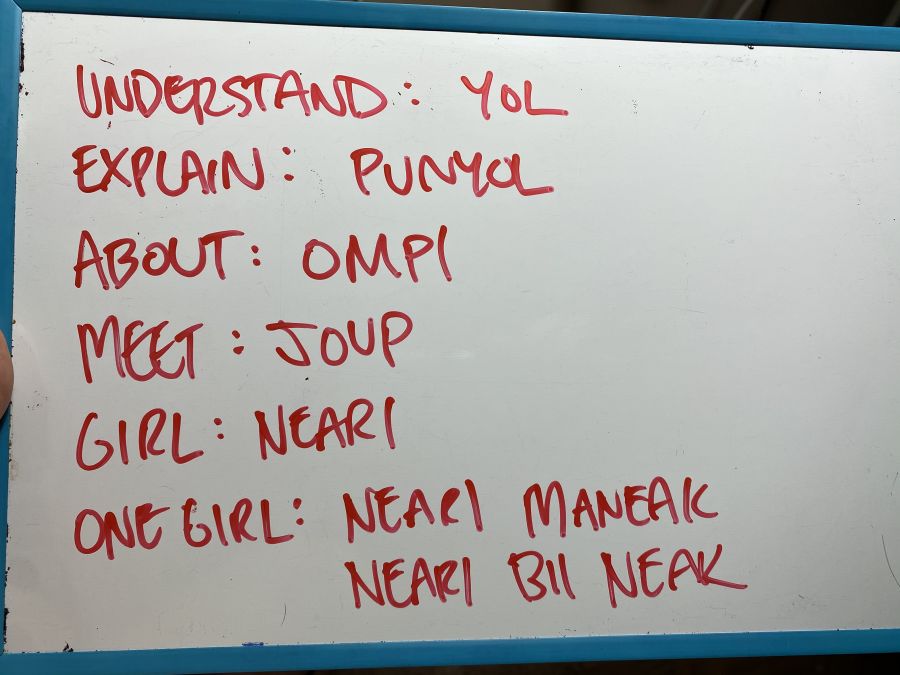 UNDERSTAND: YOL
EXPLAIN: PUNYOL
ABOUT: OMPI
MEET: JOUP
GIRL: NEARI
ONE GIRL: NEARI MANEAK
NEARI BII NEAK